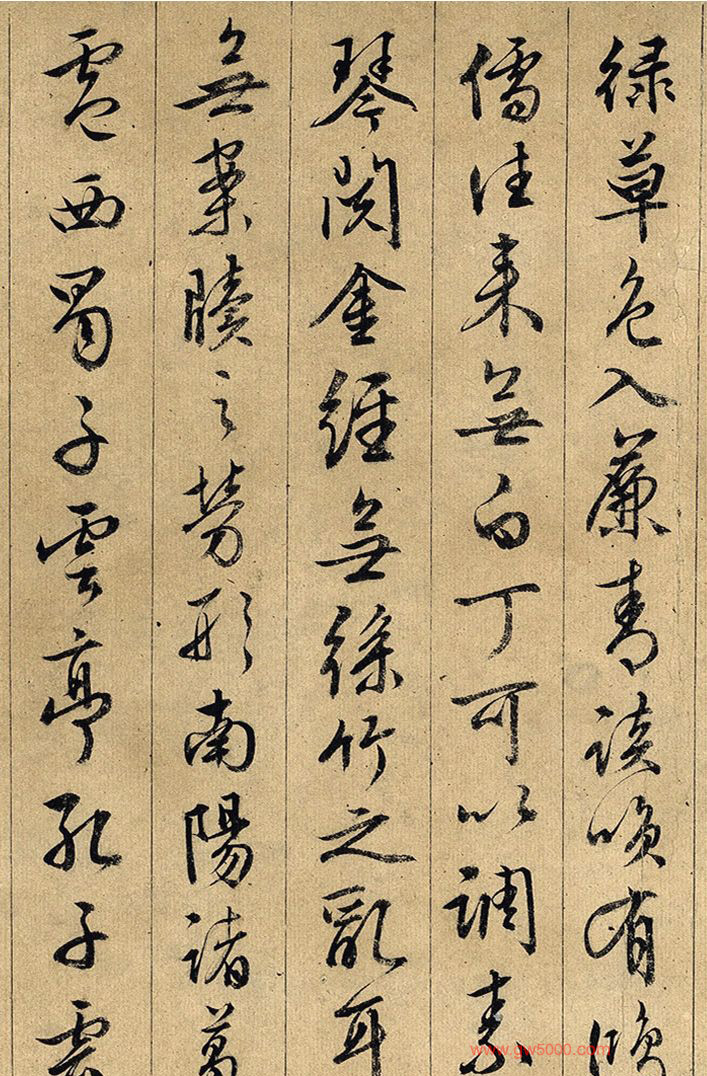 緑草色入簾青談咲有
儒往来無白丁可以調素
琴閲金經無絲竹之亂耳
無案牘之勞形南陽諸葛
廬西蜀子雲亭孔子雲
www.gw5000.com